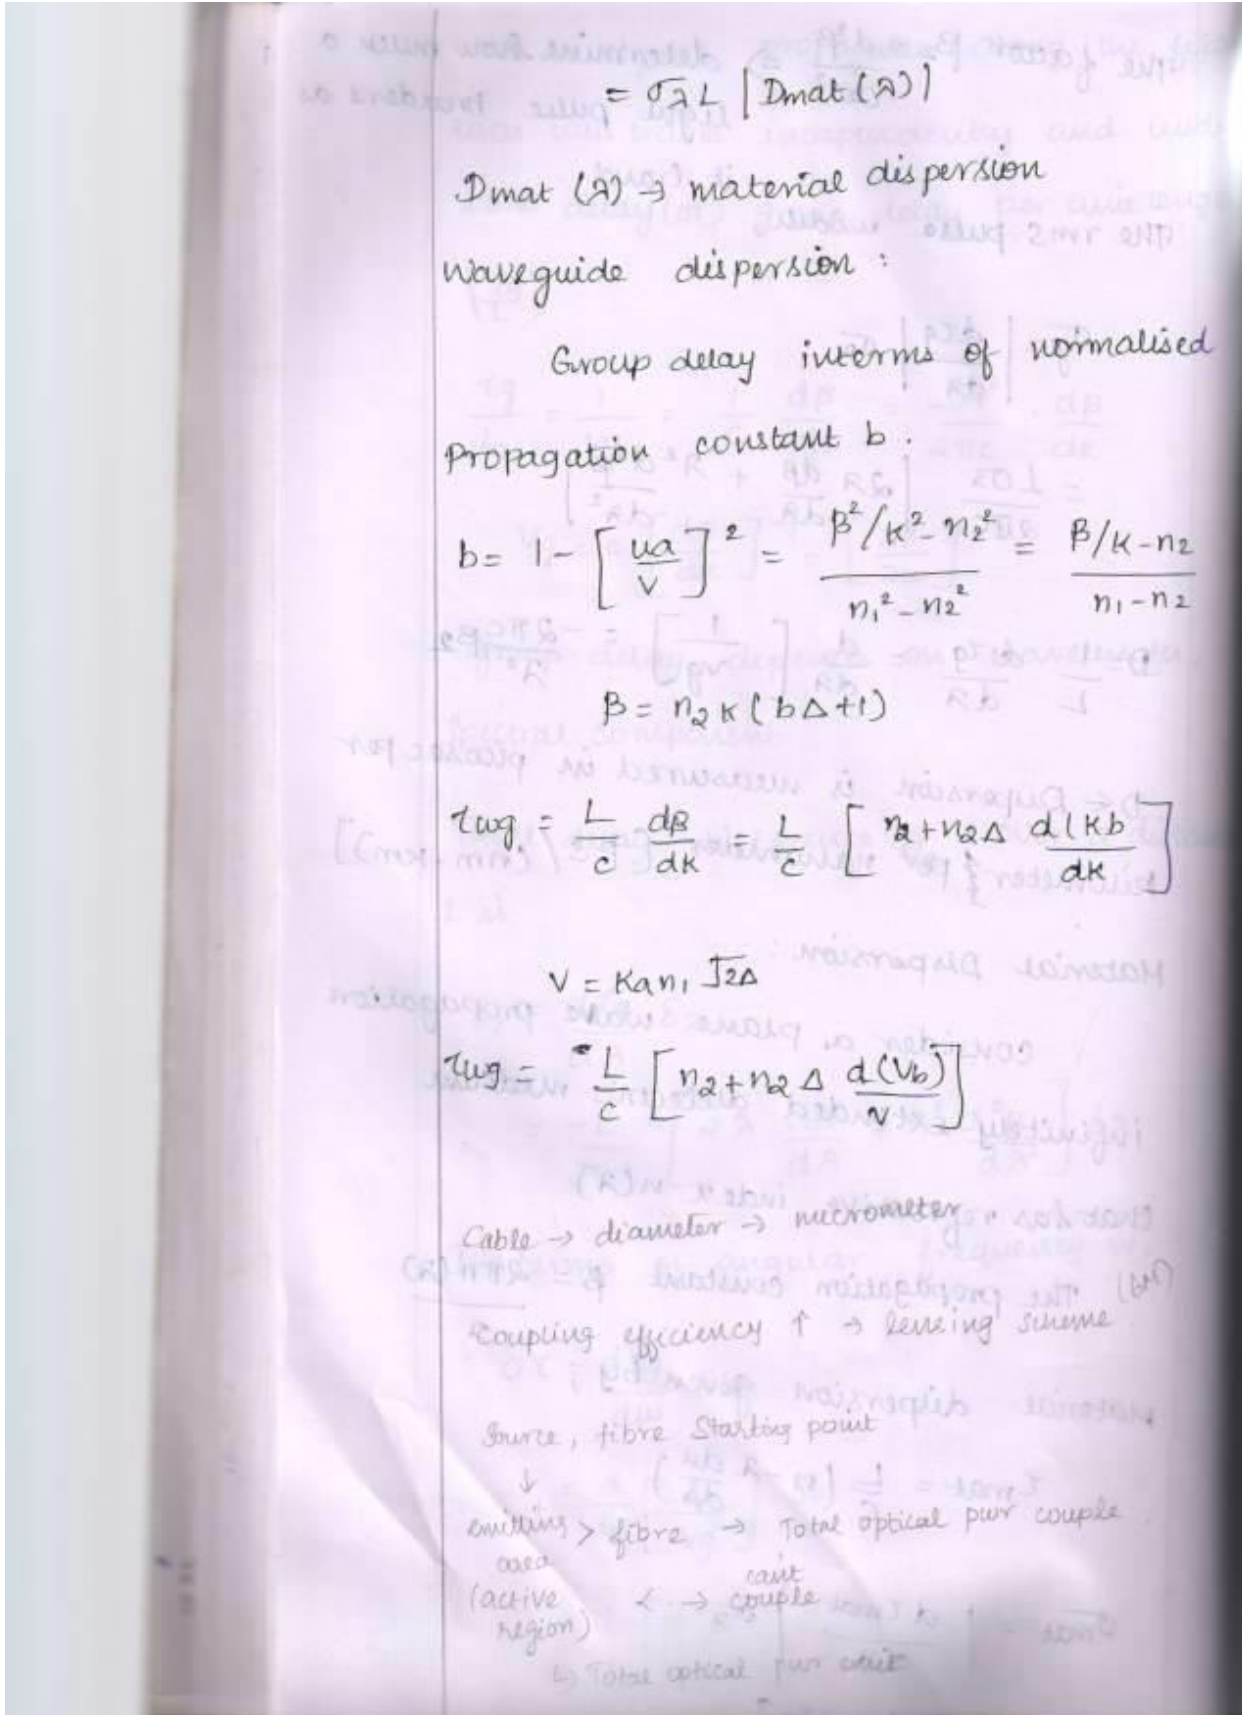 = σλ L |Dmat(λ)|
Dmat (λ) → material dispersion
Waveguide dispersion :
Group delay interms of normalised
Propagation constant b.
b = 1 - [ua/V]² = (β²/k² - n₂²)/(n₁² - n₂²) = (β/k - n₂)/(n₁ - n₂)
β = n₂ k (bΔ+1)
τwg = L/c dβ/dk = L/c [n₂ + n₂Δ d(kb/dk]
V = Kan₁ √2Δ
τwg = L/c [n₂ + n₂ Δ d(Vb)/V]
Cable → diameter → micrometer.
Coupling efficiency ↑ → lensing scheme
Source, fibre Starting point
↓
emitting > fibre → Total optical pwr couple
area cant
(active < → couple
region)
↳ Total optical pwr